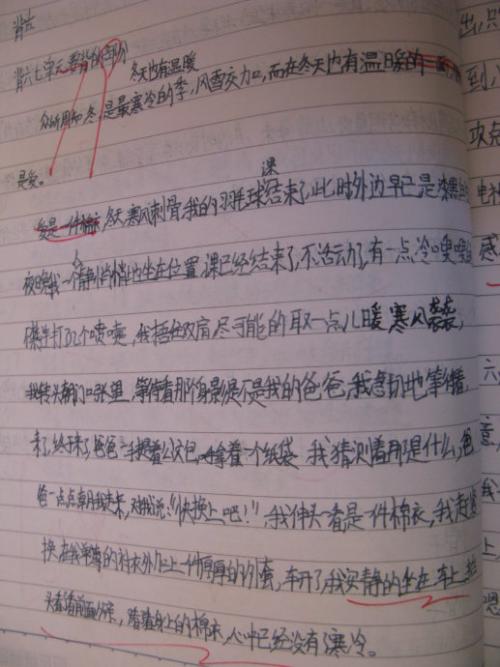 背六七单元要背的部分
冬天也有温暖
众所周知冬是最寒冷的季，风雪交加，而在冬天也有温暖的
是爱。
课
冬天寒风刺骨我的羽毛球结束了，此时外边早已是漆黑
夜晚我一个人静悄悄地坐在位置，课已经结束了，不活动了，有一点冷嗖嗖
打几个喷嚏，我捂住双肩尽可能的取一点儿暖，寒风袭袭，
我转头朝门口张望，等待着那身影是不是我的爸爸，我急切地等待着，
来了，终于来了，爸爸一手提着公文包，一手拿着一个纸袋，我猜测着那是什么，爸
爸一点点朝我走来，对我说：“快换上吧！”，我伸头一看是一件棉衣，我赶紧
换，在我单薄的衬衣外加上一件厚厚的外套，车开了，我安静的坐在车上，抬
头看着前面的爸，摸摸身上的棉衣，心中已经没有寒冷。